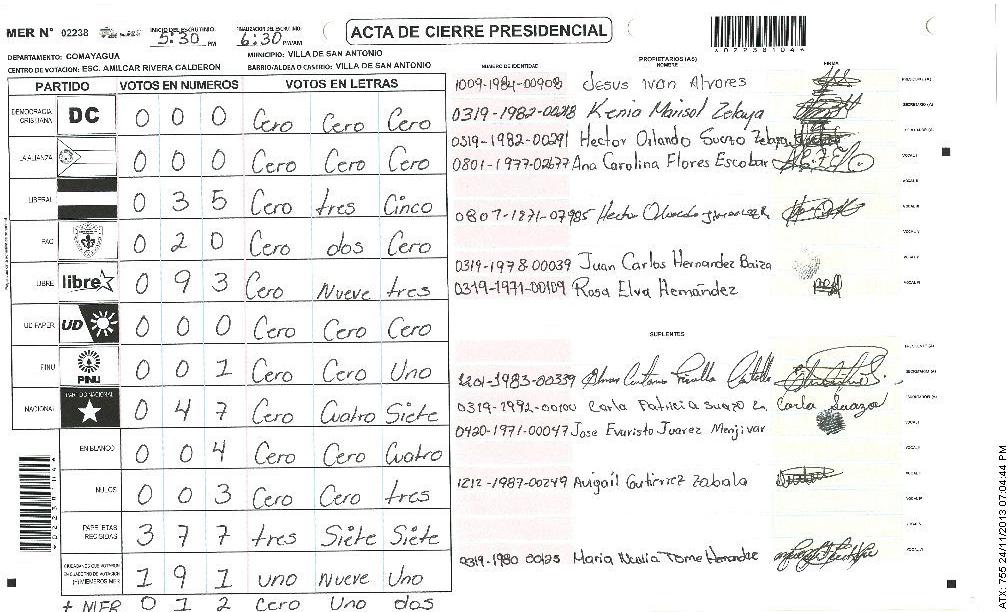 MER N° 02238
INICIO DEL ESCRUTINIO 5:30 PM
FINALIZACION DEL ESCRUTINIO 6:30 PM/AM
ACTA DE CIERRE PRESIDENCIAL
DEPARTAMENTO: COMAYAGUA
MUNICIPIO: VILLA DE SAN ANTONIO
CENTRO DE VOTACION: ESC. AMILCAR RIVERA CALDERON
BARRIO/ALDEA O CASERIO: VILLA DE SAN ANTONIO
PARTIDO VOTOS EN NUMEROS VOTOS EN LETRAS
DEMOCRACIA CRISTIANA DC 0 0 0 Cero Cero Cero
LA ALIANZA 0 0 0 Cero Cero Cero
LIBERAL 0 3 5 Cero tres Cinco
PAC 0 2 0 Cero dos Cero
LIBRE libre 0 9 3 Cero Nueve tres
UD FAPER UD 0 0 0 Cero Cero Cero
PINU PINU 0 0 1 Cero Cero Uno
NACIONAL PARTIDO NACIONAL 0 4 7 Cero Cuatro Siete
EN BLANCO 0 0 4 Cero Cero Cuatro
NULOS 0 0 3 Cero Cero tres
PAPELETAS RECIBIDAS 3 7 7 tres Siete Siete
CIUDADANOS QUE VOTARON EN CUADERNO DE VOTACION (+) MIEMBROS MER 1 9 1 uno Nueve Uno
+ MER 0 1 2 Cero Uno dos
PROPIETARIOS (AS)
NUMERO DE IDENTIDAD NOMBRE FIRMA
1009-1984-00908 Jesus Ivan Alvares
0319-1982-00218 Kenia Marisol Zelaya
0319-1982-00291 Hector Orlando Suazo Zelaya
0801-1977-02677 Ana Carolina Flores Escobar
0807-1871-07985 Hector
0319-1978-00039 Juan Carlos Hernandez Baiza
0319-1971-00109 Rosa Elva Hernández
SUPLENTES
1201-1983-00339
0319-1992-00100 Carla Patricia Suazo Carla Suazo
0420-1971-00047 Jose Evaristo Juarez Menjivar
1212-1987-00249 Avigail Gutierrez Zabala
0319-1980 00125 Maria Tome Hernandez
ATX: 755 24/11/2013 07:04:44 PM